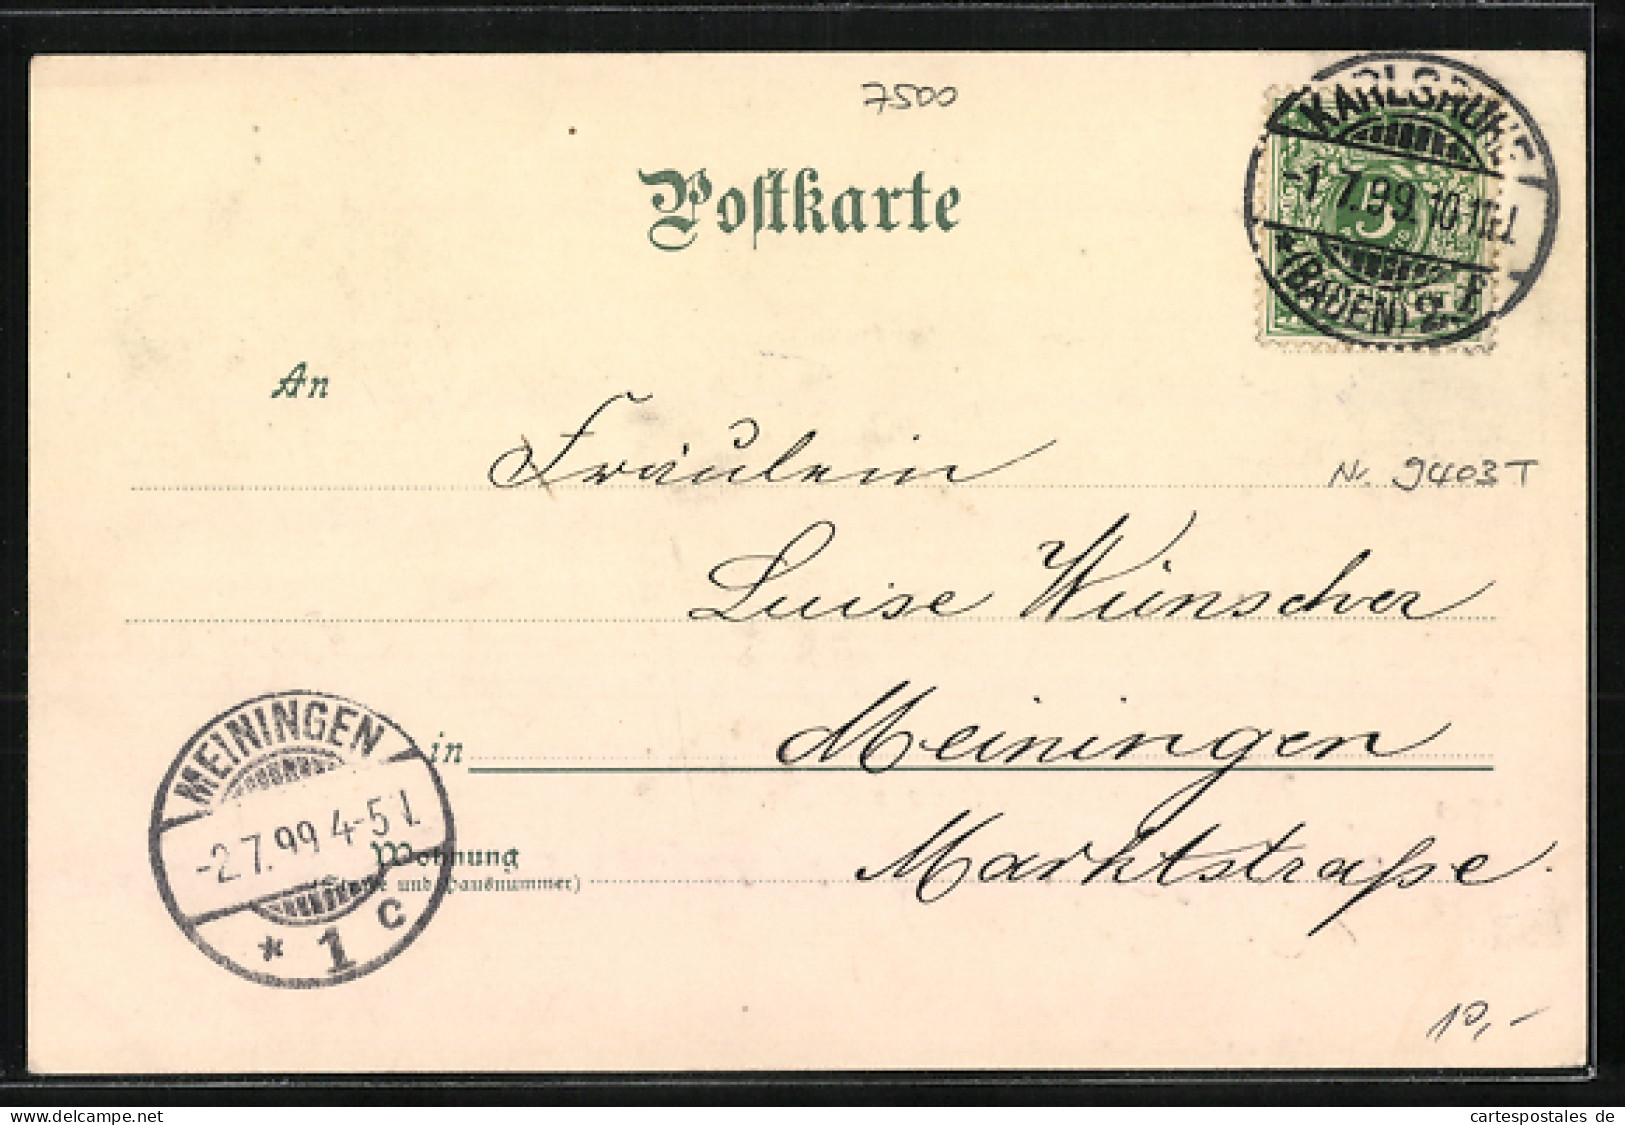 7500
KARLSRUHE
-1.7.99.10-11N.
*(BADEN) 2. F
5
Postkarte
An
Fräulein
Nr. 9403T
Luise Wünscher
in Meiningen
MEININGEN
-2.7.99 4-5 N.
* 1 c
Wohnung
(Straße und Hausnummer)
Marktstraße.
10,-
cartespostales.de
cartespostales de